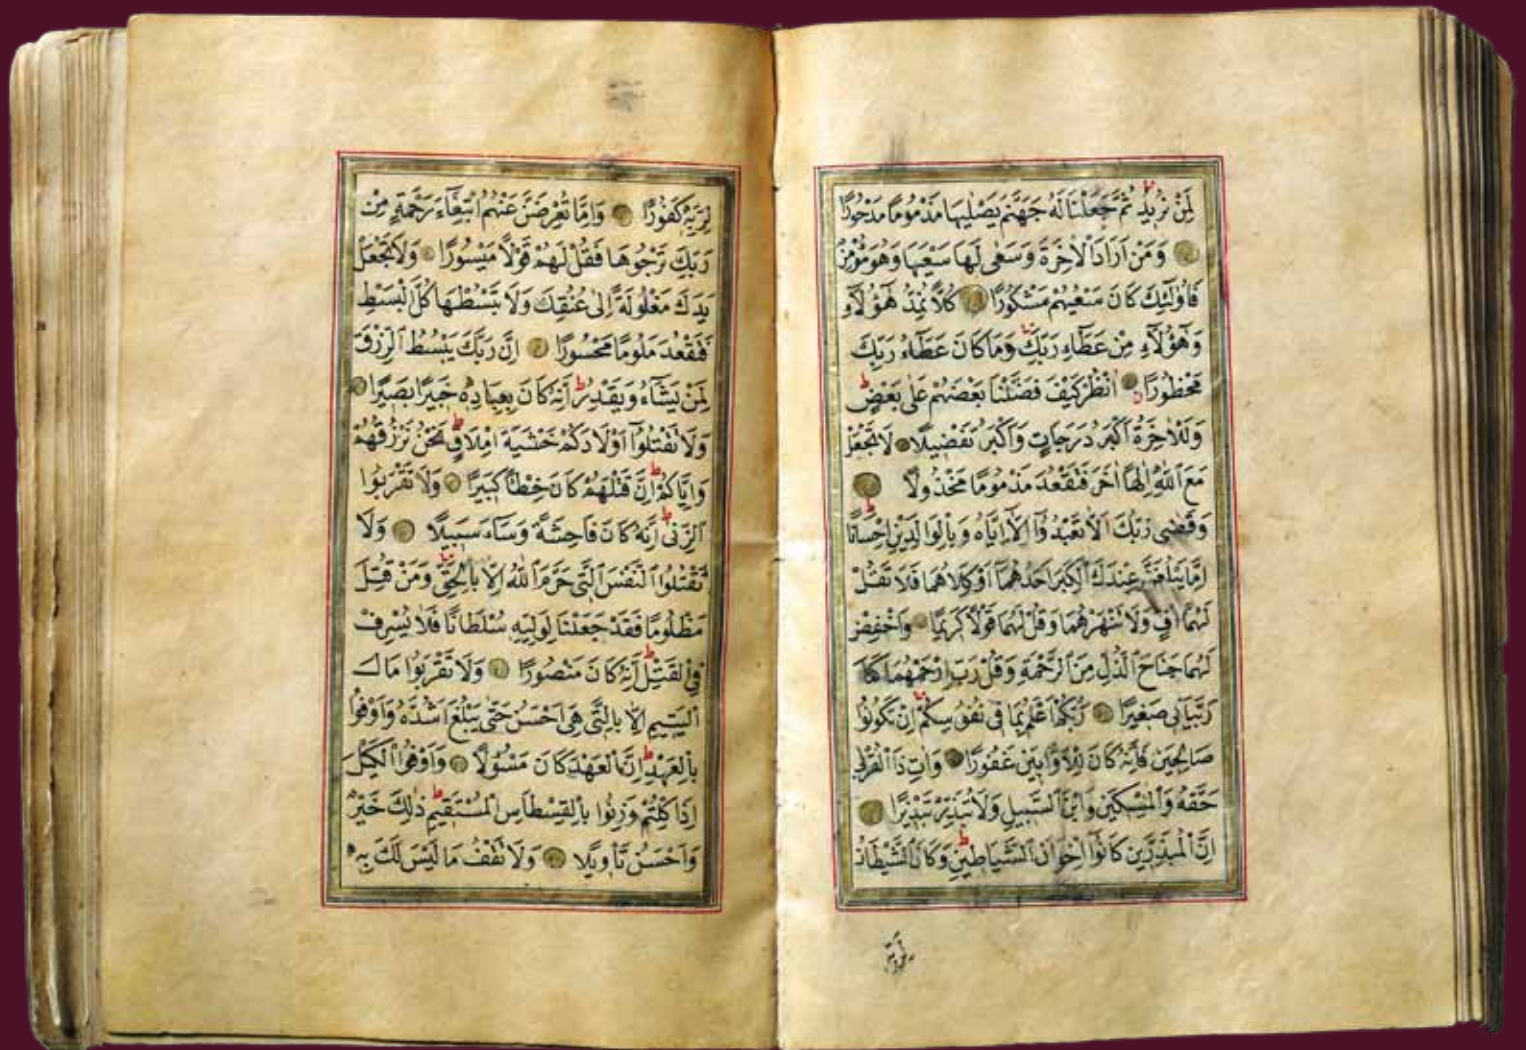 لِمَنْ نُرِيدُ ثُمَّ جَعَلْنَا لَهُ جَهَنَّمَ يَصْلٰيهَا مَذْمُومًا مَدْحُورًا
وَمَنْ اَرَادَ الْاٰخِرَةَ وَسَعٰى لَهَا سَعْيَهَا وَهُوَ مُؤْمِنٌ
فَاُولٰئِكَ كَانَ سَعْيُهُمْ مَشْكُورًا كُلًّا نُمِدُّ هٰؤُلَاءِ وَ
وَهٰؤُلَاءِ مِنْ عَطَاءِ رَبِّكَ وَمَا كَانَ عَطَاءُ رَبِّكَ
مَحْظُورًا اُنْظُرْ كَيْفَ فَضَّلْنَا بَعْضَهُمْ عَلٰى بَعْضٍ
وَلَلْاٰخِرَةُ اَكْبَرُ دَرَجَاتٍ وَاَكْبَرُ تَفْضِيلًا لَا تَجْعَلْ
مَعَ اللّٰهِ اِلٰهًا اٰخَرَ فَتَقْعُدَ مَذْمُومًا مَخْذُولًا
وَقَضٰى رَبُّكَ اَلَّا تَعْبُدُوا اِلَّا اِيَّاهُ وَبِالْوَالِدَيْنِ اِحْسَانًا
اِمَّا يَبْلُغَنَّ عِنْدَكَ الْكِبَرَ اَحَدُهُمَا اَوْ كِلَاهُمَا فَلَا تَقُلْ
لَهُمَا اُفٍّ وَلَا تَنْهَرْهُمَا وَقُلْ لَهُمَا قَوْلًا كَرِيمًا وَاخْفِضْ
لَهُمَا جَنَاحَ الذُّلِّ مِنَ الرَّحْمَةِ وَقُلْ رَبِّ ارْحَمْهُمَا كَمَا
رَبَّيَانِي صَغِيرًا رَبُّكُمْ اَعْلَمُ بِمَا فِي نُفُوسِكُمْ اِنْ تَكُونُوا
صَالِحِينَ فَاِنَّهُ كَانَ لِلْاَوَّابِينَ غَفُورًا وَاٰتِ ذَا الْقُرْبٰى
حَقَّهُ وَالْمِسْكِينَ وَابْنَ السَّبِيلِ وَلَا تُبَذِّرْ تَبْذِيرًا
اِنَّ الْمُبَذِّرِينَ كَانُوا اِخْوَانَ الشَّيَاطِينِ وَكَانَ الشَّيْطَانُ
لِرَبِّهِ
لِرَبِّهِ كَفُورًا وَاِمَّا تُعْرِضَنَّ عَنْهُمُ ابْتِغَاءَ رَحْمَةٍ مِنْ
رَبِّكَ تَرْجُوهَا فَقُلْ لَهُمْ قَوْلًا مَيْسُورًا وَلَا تَجْعَلْ
يَدَكَ مَغْلُولَةً اِلٰى عُنُقِكَ وَلَا تَبْسُطْهَا كُلَّ الْبَسْطِ
فَتَقْعُدَ مَلُومًا مَحْسُورًا اِنَّ رَبَّكَ يَبْسُطُ الرِّزْقَ
لِمَنْ يَشَاءُ وَيَقْدِرُ اِنَّهُ كَانَ بِعِبَادِهِ خَبِيرًا بَصِيرًا
وَلَا تَقْتُلُوا اَوْلَادَكُمْ خَشْيَةَ اِمْلَاقٍ نَحْنُ نَرْزُقُهُمْ
وَاِيَّاكُمْ اِنَّ قَتْلَهُمْ كَانَ خِطْـًٔا كَبِيرًا وَلَا تَقْرَبُوا
الزِّنٰى اِنَّهُ كَانَ فَاحِشَةً وَسَاءَ سَبِيلًا وَلَا
تَقْتُلُوا النَّفْسَ الَّتِي حَرَّمَ اللّٰهُ اِلَّا بِالْحَقِّ وَمَنْ قُتِلَ
مَظْلُومًا فَقَدْ جَعَلْنَا لِوَلِيِّهِ سُلْطَانًا فَلَا يُسْرِفْ
فِي الْقَتْلِ اِنَّهُ كَانَ مَنْصُورًا وَلَا تَقْرَبُوا مَالَ
الْيَتِيمِ اِلَّا بِالَّتِي هِيَ اَحْسَنُ حَتّٰى يَبْلُغَ اَشُدَّهُ وَاَوْفُوا
بِالْعَهْدِ اِنَّ الْعَهْدَ كَانَ مَسْؤُلًا وَاَوْفُوا الْكَيْلَ
اِذَا كِلْتُمْ وَزِنُوا بِالْقِسْطَاسِ الْمُسْتَقِيمِ ذٰلِكَ خَيْرٌ
وَاَحْسَنُ تَأْوِيلًا وَلَا تَقْفُ مَا لَيْسَ لَكَ بِهِ